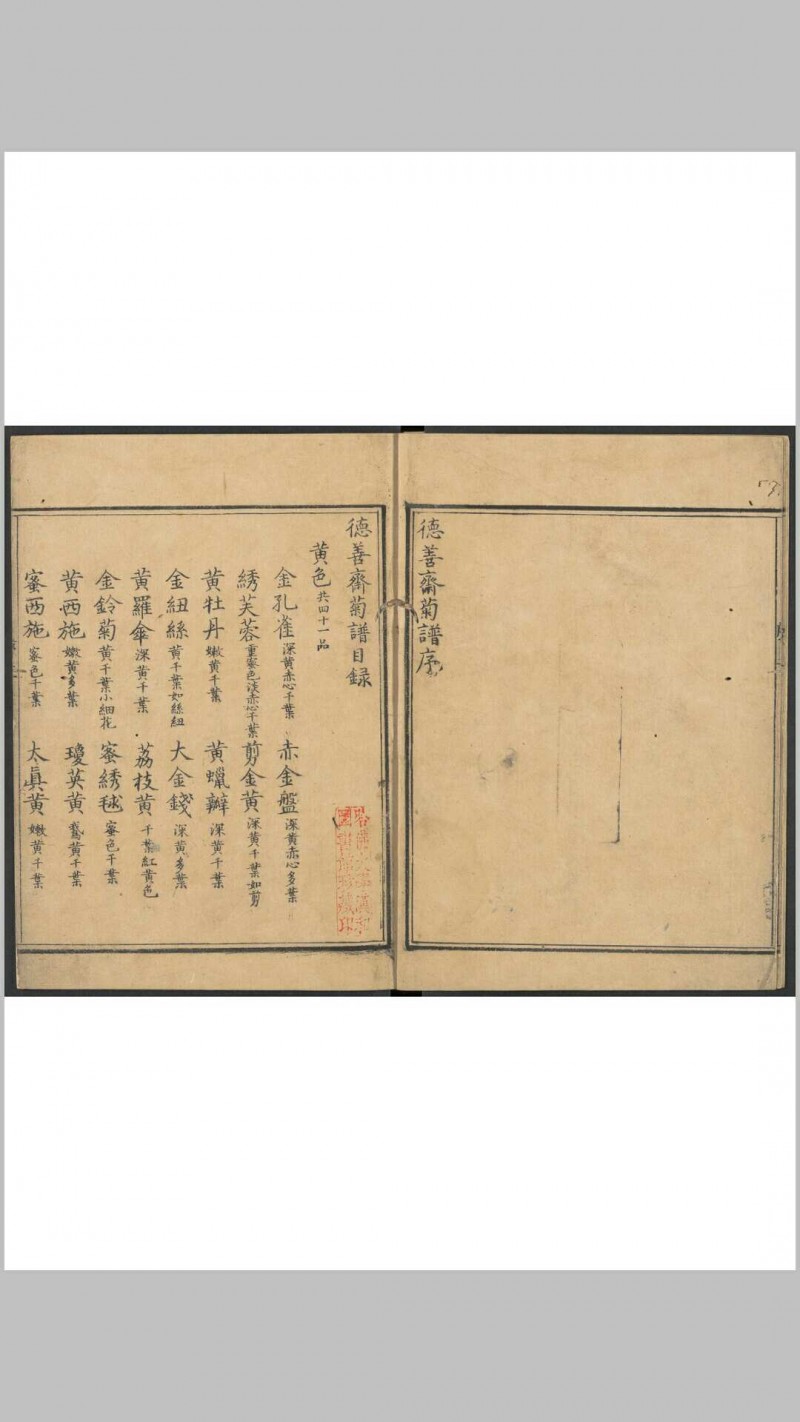 德善齋菊譜序
德善齋菊譜目録
黄色 共四十一品
金孔雀 深黄赤心千葉 赤金盤 深黄赤心多葉
綉芙蓉 重蜜色淡赤心千葉 剪金黄 深黄千葉如剪
黄牡丹 嫩黄千葉 黄蠟瓣 深黄千葉
金紐絲 黄千葉如絲紐 大金錢 深黄多葉
黄羅傘 深黄千葉 荔枝黄 千葉紅黄色
金鈴菊 黄千葉小細花 蜜綉毬 蜜色千葉
黄西施 嫩黄多葉 瓊英黄 鵞黄千葉
蜜西施 蜜色千葉 太眞黄 嫩黄千葉